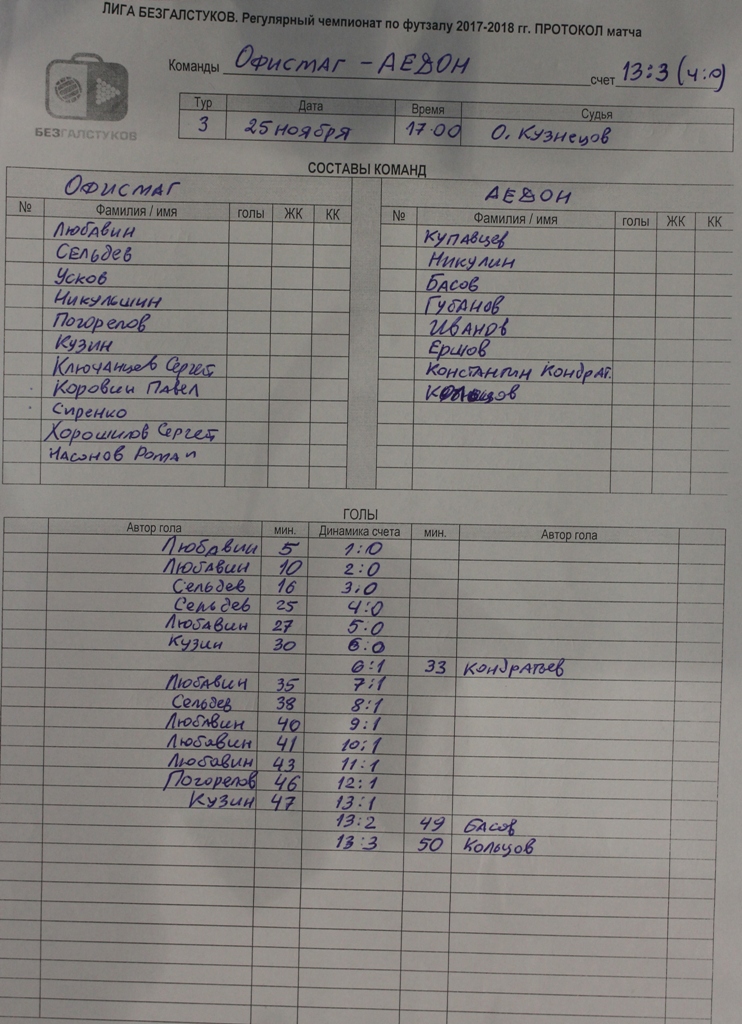 ЛИГА БЕЗГАЛСТУКОВ. Регулярный чемпионат по футзалу 2017-2018 гг. ПРОТОКОЛ матча
Команды Офисмаг - АЕДОН счет 13:3 (4:0)
БЕЗГАЛСТУКОВ
Тур Дата Время Судья
3 25 ноября 17-00 О. Кузнецов
СОСТАВЫ КОМАНД
Офисмаг АЕДОН
№ Фамилия / имя голы ЖК КК № Фамилия / имя голы ЖК КК
Любавин Купавцев
Сельдев Никулин
Усков Басов
Никульшин Губанов
Погорелов Иванов
Кузин Ершов
Ключанцев Сергей Константин Кондрат.
Коровин Павел
Сиренко
Хорошилов Сергей
Насонов Роман
ГОЛЫ
Автор гола мин. Динамика счета мин. Автор гола
Любавин 5 1:0
Любавин 10 2:0
Сельдев 16 3:0
Сельдев 25 4:0
Любавин 27 5:0
Кузин 30 6:0
6:1 33 Кондратьев
Любавин 35 7:1
Сельдев 38 8:1
Любавин 40 9:1
Любавин 41 10:1
Любавин 43 11:1
Погорелов 46 12:1
Кузин 47 13:1
13:2 49 Басов
13:3 50 Кольцов